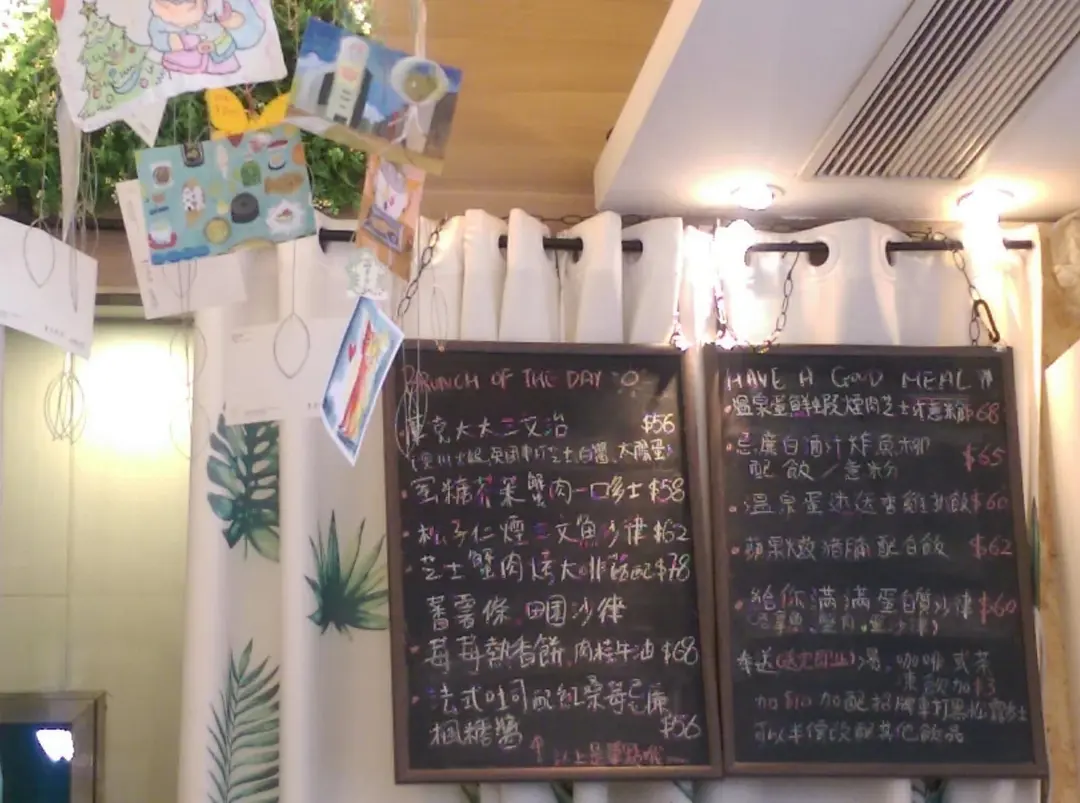 BRUNCH OF THE DAY
克太太三文治 $56
蜜糖芥菜蟹肉一口多士 $58
松子仁煙三文魚沙律 $62
芝士蟹肉 大啡菇配 $78
蕃薯條、田園沙律
莓莓熱香餅、肉桂牛油 $68
法式吐司配紅桑莓忌廉
楓糖醬 $56
HAVE A GOOD MEAL
溫泉蛋鮮蝦煙肉芝士汁意粉 68
忌廉白酒汁炸魚柳
配飯／意粉 $65
溫泉蛋 雞扒飯 $60
蘋果燉豬腩配白飯 $62
給你滿滿蛋白質沙律 $60
奉送 湯、咖啡或茶
凍飲加 $3
加 $10 加配招牌
可以半價改配其他飲品